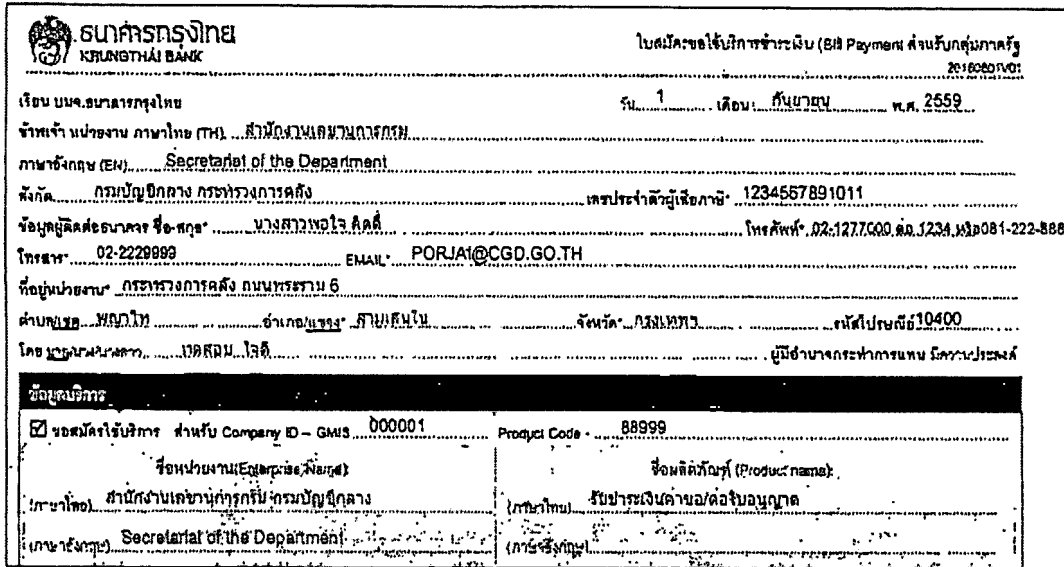 ธนาคารกรุงไทย
KRUNGTHAI BANK
ใบสมัครขอใช้บริการชำระเงิน (Bill Payment สำหรับกลุ่มภาครัฐ
20160801V01
เรียน บมจ.ธนาคารกรุงไทย วัน 1 เดือน กันยายน พ.ศ. 2559
ข้าพเจ้า หน่วยงาน ภาษาไทย (TH) สำนักงานเลขานุการกรม
ภาษาอังกฤษ (EN) Secretariat of the Department
สังกัด กรมบัญชีกลาง กระทรวงการคลัง เลขประจำตัวผู้เสียภาษี* 1234567891011
ข้อมูลผู้ติดต่อธนาคาร ชื่อ-สกุล* นางสาวพอใจ คิดดี โทรศัพท์* 02-1277000 ต่อ 1234 หรือ081-222-888
โทรสาร* 02-2229999 EMAIL* PORJA1@CGD.GO.TH
ที่อยู่หน่วยงาน* กระทรวงการคลัง ถนนพระราม 6
ตำบล/เขต พญาไท อำเภอ/แขวง* สามเสนใน จังหวัด* กรุงเทพฯ รหัสไปรษณีย์ 10400
โดย นาย/นาง/นางสาว ทดสอบ ใจดี ผู้มีอำนาจกระทำการแทน มีความประสงค์
ข้อมูลบริการ
☑ ขอสมัครใช้บริการ สำหรับ Company ID – GMIS 000001 Product Code - 88999
ชื่อหน่วยงาน(Enterprise Name) ชื่อผลิตภัณฑ์ (Product name)
(ภาษาไทย) สำนักงานเลขานุการกรม กรมบัญชีกลาง (ภาษาไทย) รับชำระเงินค่าขอ/ต่อใบอนุญาต
(ภาษาอังกฤษ) Secretariat of the Department (ภาษาอังกฤษ)